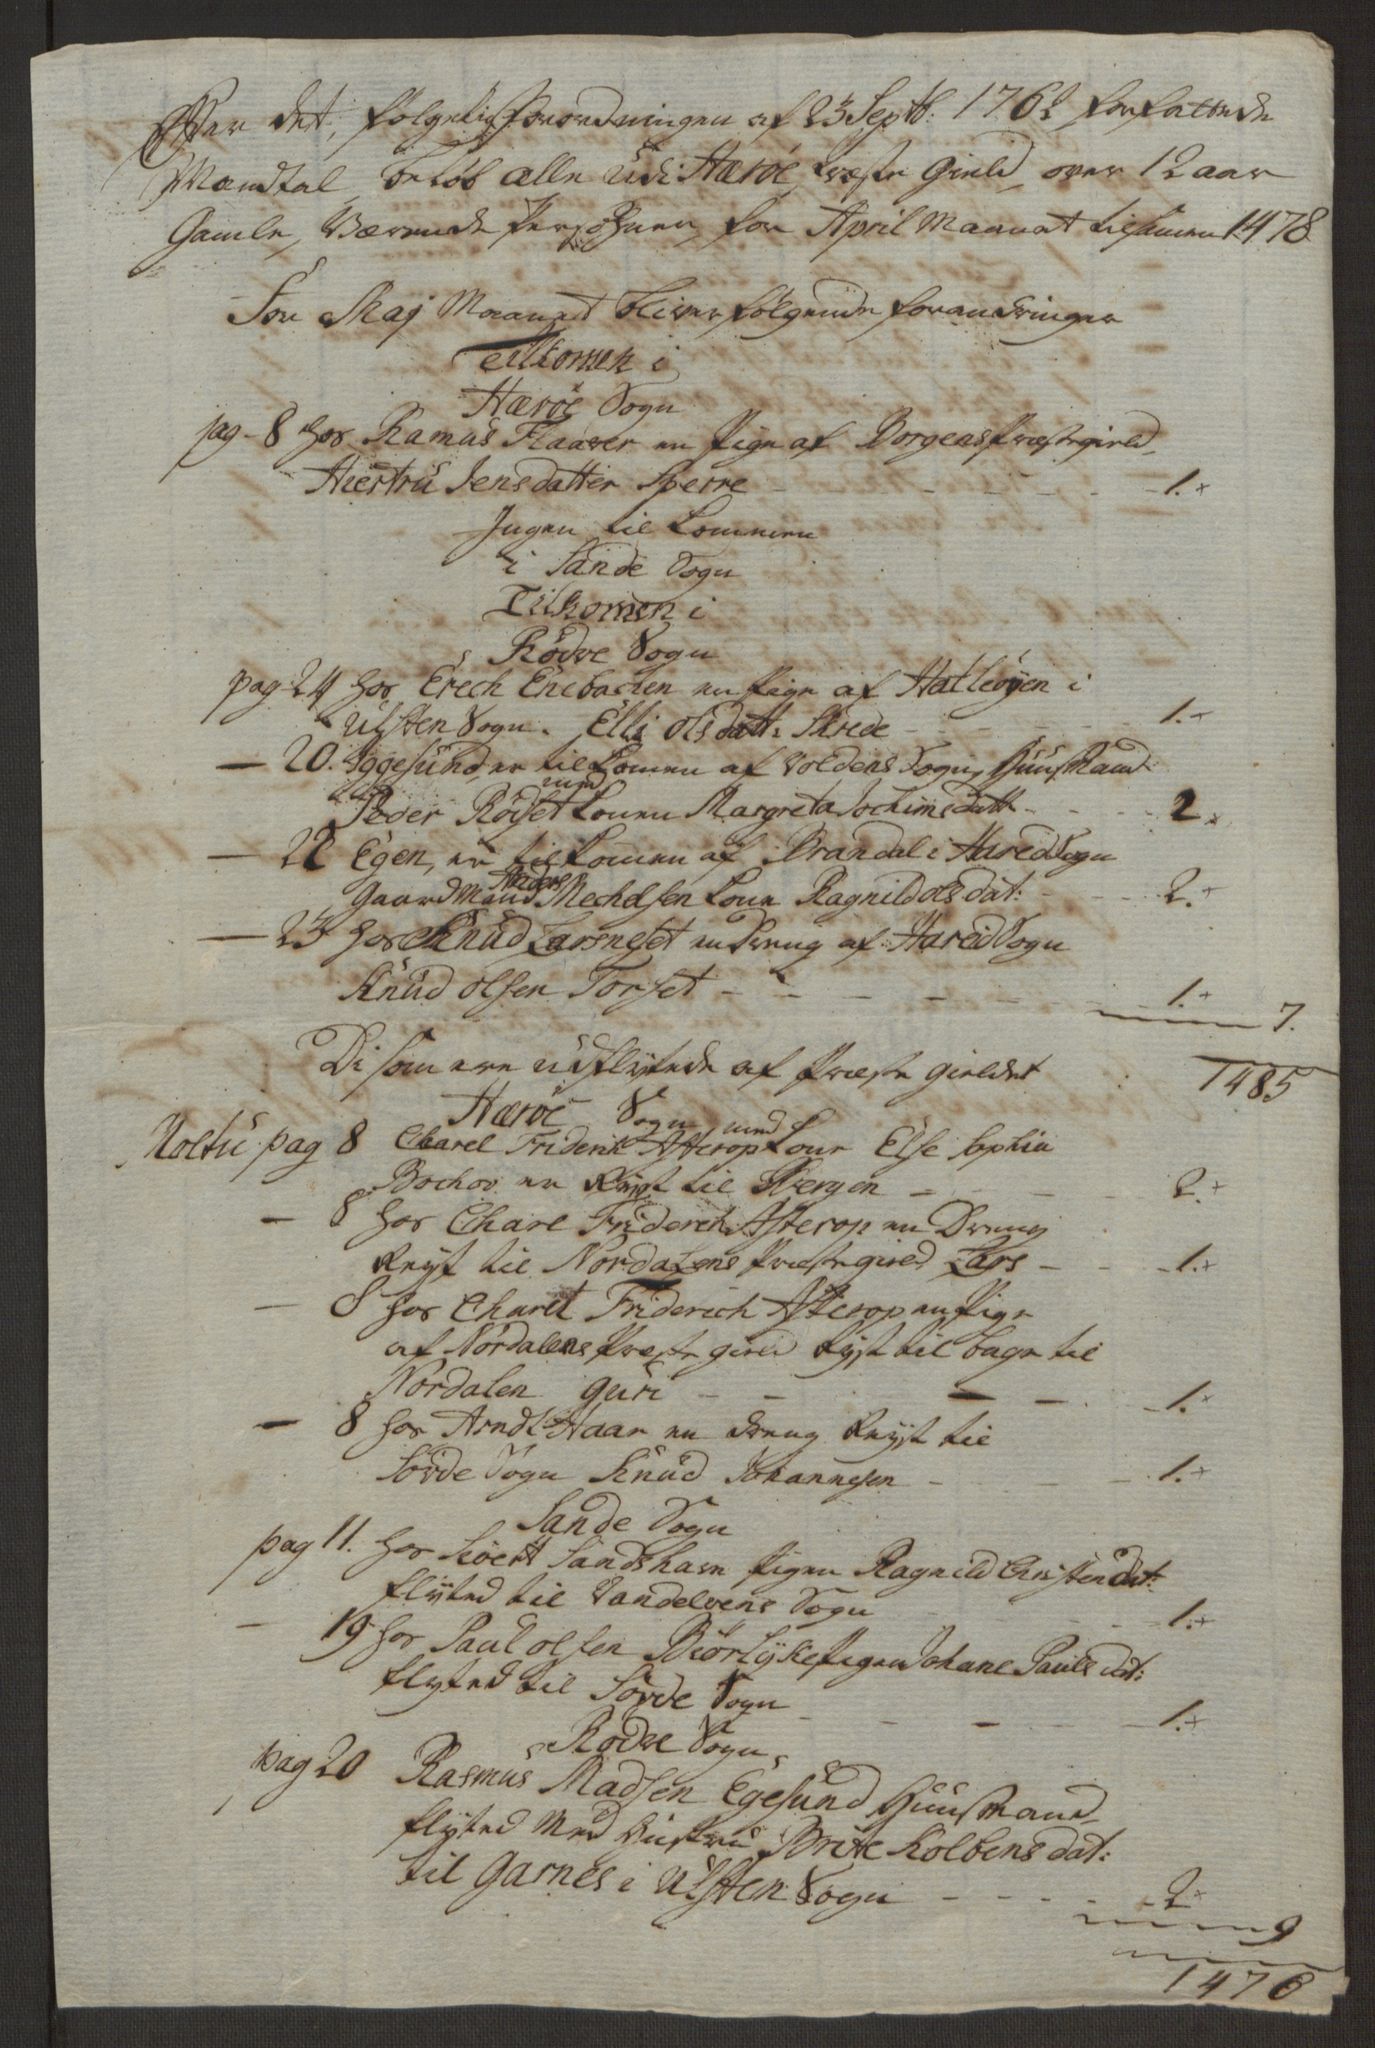 Efter det, følgelig Forordningen af 23 Septb: 1762 forfattede
Mandtal, beløb alle udi Herøe Præste Gield, over 12 aar
Gamle, Værende Persohner, for April Maanet tilsamen 1478
For Maj Maaned bliver følgende forandringer
Tilkomen i
Herøe Sogn
pag - 8 hos Ramus Flaaver en Pige af Borgens Præstegield
Hiertru Jensdatter Sperre - - - - 1.+
Ingen til kommen
i Sande Sogn
Tilkomen i
Rödve Sogn
pag: 24 hos Erech Enebachen en Pige af Hatleöyen i
Ulsten Sogn. Elli Olsdatt: Skrede - - 1.+
— 20. Iggesund, er til komen af Voldens Sogn, Huusmand
Peder Rödset med kone Margreta Jochimsdatt - - 2.
— 22 Egen, er til komen af Brandal i Hareid Sogn
Gaardmand Anders Mechelsen kone Ragnild Olsdat: - - 2.+
— 23 hos Knud Larsneset en dreng af Hareid Sogn
Knud Olsen Torset - - - - 1.+
7.
Di som ere udflytede af Præste gieldet
1485
Herøe Sogn
Moltu pag 8 Charel Friderik Asterop med kone Else Sophia
Bochov er Reyst til Bergen - - - - 2.+
— 8 hos Charl Friderch Asterop en Dreng
Reyst til Nordalens Præstegield Lars - - 1.+
— 8 hos Charel Friderich Asterop en Pige
af Nordalens Præste gield Reyst til bage til
Nordalen Guri - - - - 1.+
— 8 hos Arndt Haar en dreng Reyst til
Sövde Sogn Knud Johannesen - - 1.+
Sande Sogn
pag 11. hos Sivert Sandshavn Pigen Ragnild Christendat:
flyted til Vandelvens Sogn - - 1.+
— 19 hos Paul Olsen Biörlyke Pigen Johane Pauls dat:
flyted til Sövde Sogn - - - - 1.+
Rodve Sogn
pag 20 Rasmus Madsen Egesund Huusmand
flyted Med Hustru Brite Kolbensdat:
til Garnes i Ulsten Sogn - - - - 2+
9
1476